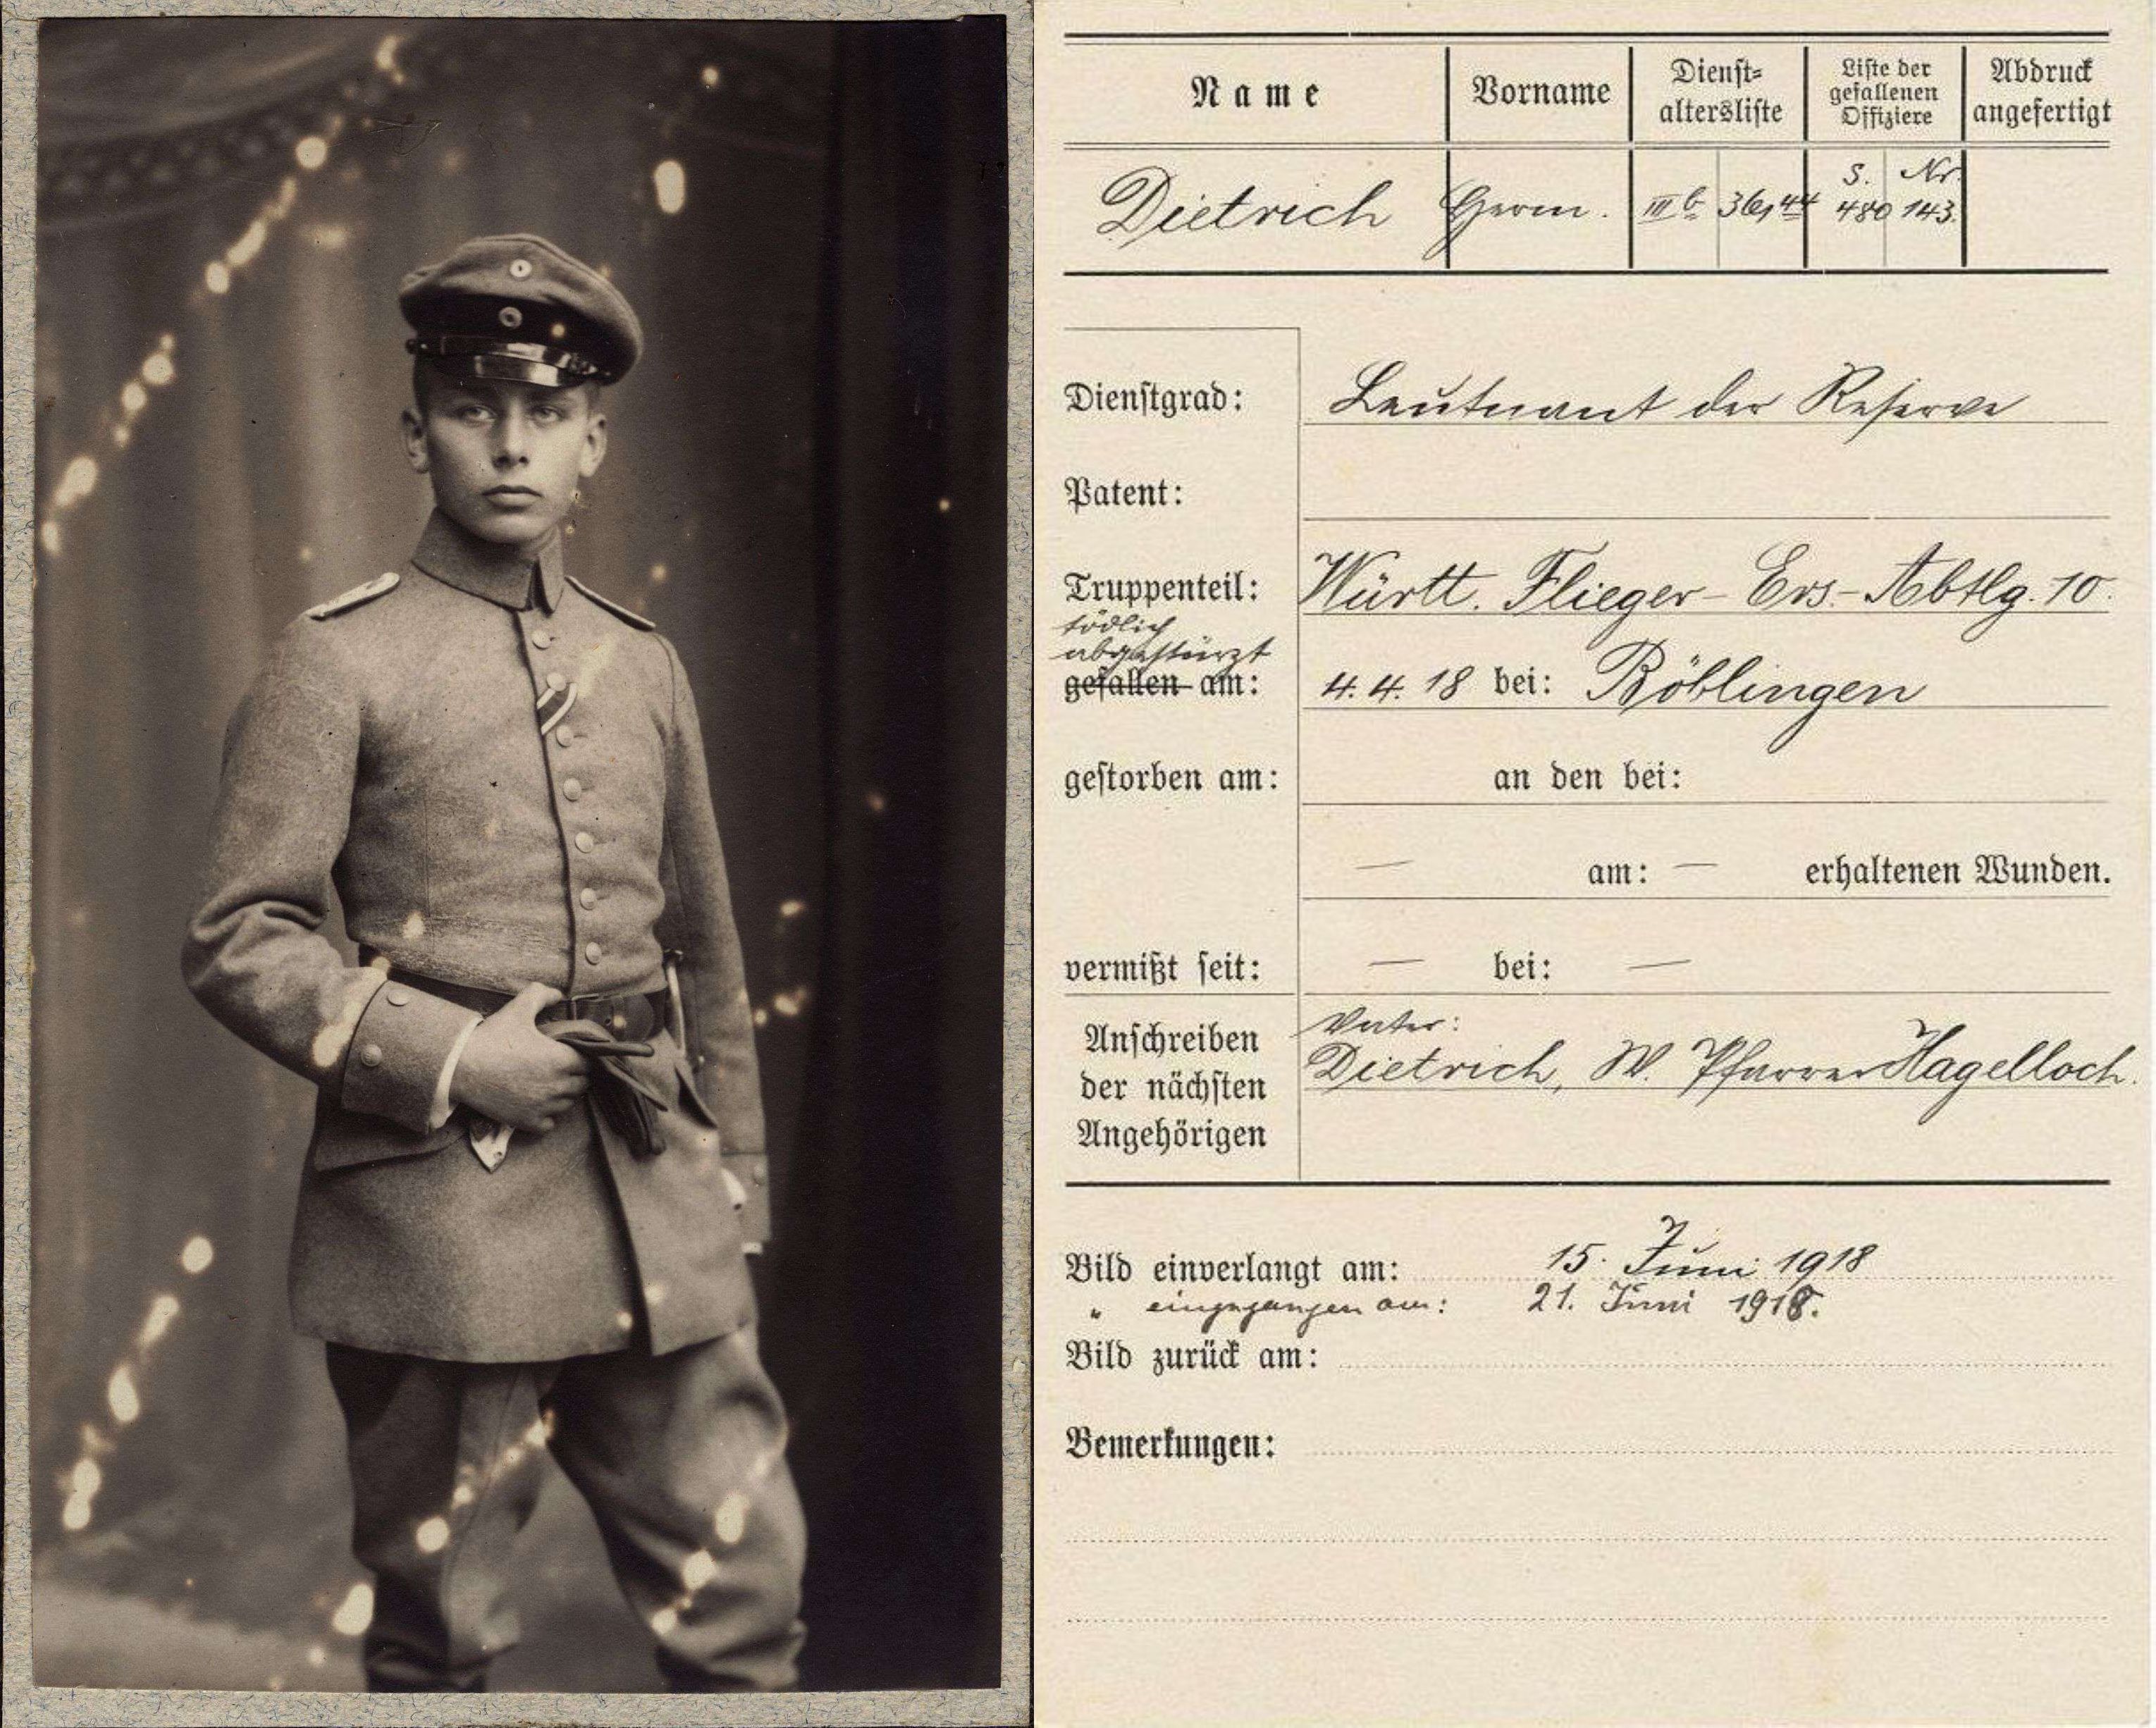 Name Vorname Dienst- Liste der Abdruck
altersliste gefallenen angefertigt
Offiziere
S. Nr
Dietrich Herm. III b 36,44 480 143.
Dienstgrad: Leutnant der Reserve
Patent:
Truppenteil: Württ. Flieger-Ers.-Abtlg. 10.
tödlich
abgestürzt
gefallen am: 4.4.18 bei: Böblingen
gestorben am: an den bei:
— am: — erhaltenen Wunden.
vermißt seit: — bei: —
Anschreiben Vater:
der nächsten Dietrich, W. Pfarrer Hagelloch.
Angehörigen
Bild einverlangt am: 15. Juni 1918
" eingegangen am: 21. Juni 1918.
Bild zurück am:
Bemerkungen: